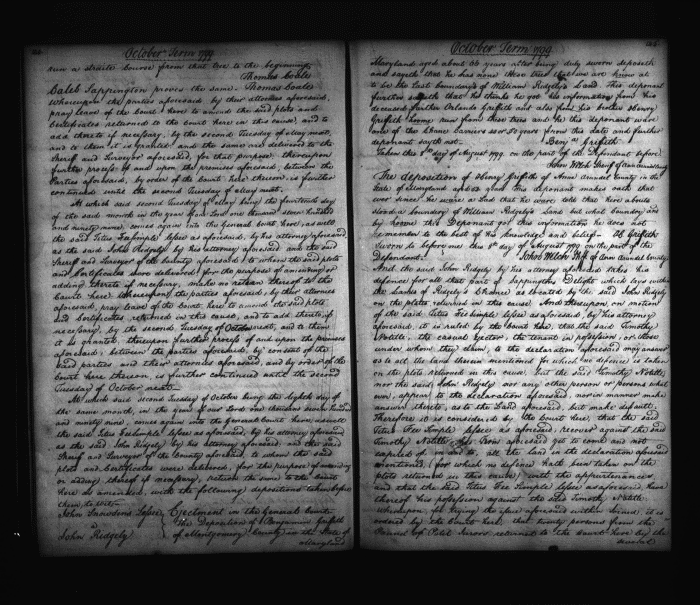 October Term 1799
run a straite course from that tree to the beginning
Thomas Coale
Caleb Sappington proves the same. Thomas Coale
Whereupon the parties aforesaid by their attornies aforesaid,
pray leave of the Court here to amend the said plots and
Certificates returned to the Court here in this cause, and to
add thereto if necessary, by the second Tuesday of may next,
and to them it is granted and the same are delivered to the
Sheriff and Surveyor aforesaid, for that purpose, thereupon
further process of and upon the premises aforesaid, between the
Parties aforesaid, by order of the Court here thereon is further
continued until the second Tuesday of may next.
At which said second Tuesday of may being the fourteenth day
of the said month in the year of our Lord one thousand seven hundred
and ninety nine, comes again into the General Court here, as well
the said Titus Feesimple lessee as aforesaid, by his attorney aforesaid
as the said John Ridgely by his attorney aforesaid and the said
Sheriff and Surveyor of the County aforesaid, to whom the said plots
and Certificates were delivered, for the purpose of amending or
adding thereto if necessary, make no return thereof to the
Court here Whereupon the parties aforesaid by their attornies
aforesaid, pray leave of the Court here to amend the said plots
and Certificates returned in this cause, and to add thereto if
necessary, by the second Tuesday of October next, and to them
it is granted, thereupon further process of and upon the premises
aforesaid, between the parties aforesaid, by consent of the
said parties and their attornies aforesaid, and by order of the
Court here thereon, is further continued until the second
Tuesday of October next
At which said second Tuesday of October being the eighth day of
the same month, in the year of our Lord one thousand seven hundred
and ninety nine, comes again into the General Court here, as well
the said Titus Feesimple lessee as aforesaid, by his attorney aforesaid,
as the said John Ridgely by his attorney aforesaid, and the said
Sheriff and Surveyor of the County aforesaid, to whom the said
plots and Certificates were delivered, for the purpose of amending
or adding thereto if necessary, return the same to the Court
here as amended, with the following depositions taken before
them to wit
John Snowdens Lessee Ejectment in the General Court
The Deposition of Benjamin Griffith
John Ridgely of Montgomery County in the State of
Maryland
October Term 1799
Maryland aged about 66 years after being duly sworn deposeth
and sayeth that he has none these trees that we are know at
to be the East boundary of William Ridgelys Land. This deponant
further sayeth that he thinks he got his information from his
deceased farther Orlando Griffith and also from his brother Henry
Griffith some run from these trees and he this deponant were
one of the Chane Carriers 50 years from this date and further
deponant sayth not. Benj. Griffith
Taken this 8th day of August 1799. on the part of the Defendant before
John Welch Sheriff of Ann arundel County
The deposition of Henry Griffith of Anne Arundel County in the
State of Maryland aged This deponant makes oath that
ever since he were a lad that he were told that here about
stood a boundary of William Ridgelys Land but what boundary and
by whom this Deponant has this information he does not
remember to the best of his knowledge and belief. H. Griffith
Sworn to before me this 8th day of August 1799 on the part of the
Defendant. John Welch Shff. of Ann Arundel County.
And the said John Ridgely by his attorney aforesaid takes his
defence for all that part of Sappingtons Delight which lays within
the Lands of Ridgely as is located by the said John Ridgely
on the plots returned in this cause. And thereupon, on motion
of the said Titus Feesimple lessee as aforesaid, by his attorney
aforesaid, it is ruled by the Court here, that the said Timothy
Notitle, the casual Ejector, the tenant in possession, or those
under whom they claim, to the declaration aforesaid may answer
as to all the land therein mentioned for which no defence is taken
on the plots returned in this cause, but the said Timothy Notitle,
nor the said John Ridgely nor any other person or persons what
ever, appear to the declaration aforesaid, nor in manner make
answer thereto, as to the Land aforesaid, but make default.
Therefore it is considered by the Court here, that the said
Titus Fee Simple lessee as aforesaid, recover against the said
Timothy Notitle his Term aforesaid yet to come and not
expired of in and to, all the land in the declaration aforesaid
mentioned, (for which no defence hath been taken on the
plots returned in this cause) with the appurtenances
and that the said Titus Fee Simple lessee as aforesaid, have
thereof his possession against the said Timothy Notitle
Whereupon, for trying the issue aforesaid within joined, it is
ordered by the Court here, that twenty persons from the
Pannel of Petit Jurors returned to the Court here by the
several